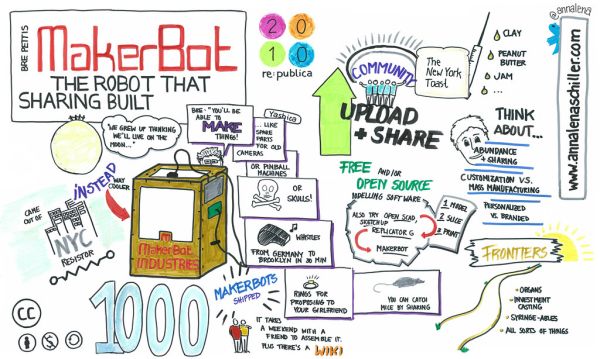 BRE PETTIS
MakerBot
THE ROBOT THAT
SHARING BUILT
2010
re:publica
"WE GREW UP THINKING
WE'LL LIVE ON THE
MOON..."
INSTEAD
WAY
COOLER
CAME
OUT OF
NYC
RESISTOR
BRE: "YOU'LL BE
ABLE TO
MAKE
THINGS!
Yashica
... LIKE
SPARE
PARTS
FOR OLD
CAMERAS
OR PINBALL
MACHINES
OR
SKULLS!
WHISTLES
FROM GERMANY TO
BROOKLYN IN 30 MIN
MakerBot
INDUSTRIES
1000
MAKERBOTS
SHIPPED
RINGS FOR
PROPOSING TO
YOUR GIRLFRIEND
YOU CAN CATCH
MICE BY SHARING
IT TAKES
A WEEKEND WITH A
FRIEND TO ASSEMBLE IT.
PLUS THERE'S A WIKI
CC
COMMUNITY
The
New York
Toast
CLAY
PEANUT
BUTTER
JAM
...
UPLOAD
+ SHARE
FREE AND/OR
OPEN SOURCE
MODELLING SOFTWARE
ALSO TRY OPEN SCAD,
SKETCH UP
REPLICATOR G
MAKERBOT
1 MODEL
2 SLICE
3 PRINT
THINK
ABOUT...
ABUNDANCE
+ SHARING
CUSTOMIZATION VS.
MASS MANUFACTURING
PERSONALIZED
VS BRANDED
FRONTIERS
ORGANS
INVESTMENT
CASTING
SYRINGE-ABLES
ALL SORTS OF THINGS
@annalena
www.annalenaschiller.com